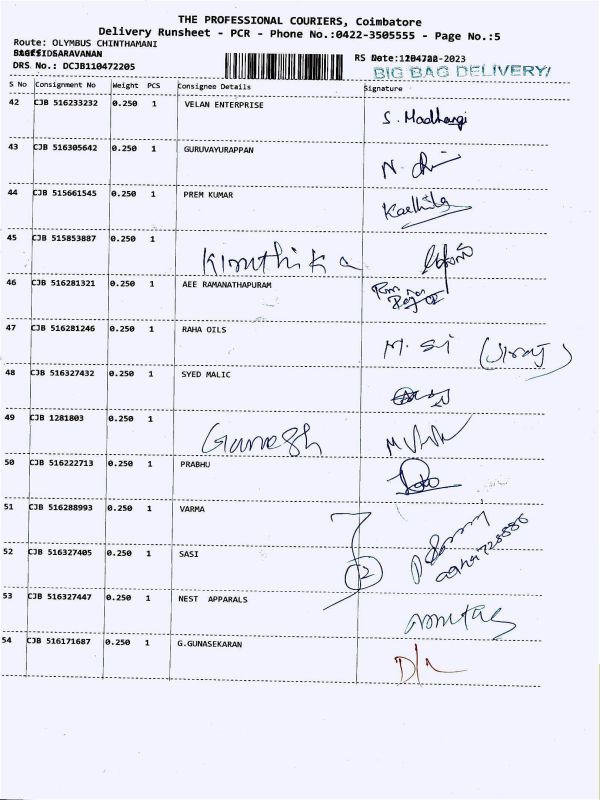 THE PROFESSIONAL COURIERS, Coimbatore
Delivery Runsheet - PCR - Phone No.:0422-3505555 - Page No.:5
Route: OLYMBUS CHINTHAMANI
SARAVANAN
RS Date: -2023
DRS No.: DCJB110472205
BIG BAG DELIVERY/
S No Consignment No Weight PCS Consignee Details Signature
42 CJB 516233232 0.250 1 VELAN ENTERPRISE S. Madhangi
43 CJB 516305642 0.250 1 GURUVAYURAPPAN
44 CJB 515661545 0.250 1 PREM KUMAR
45 CJB 515853887 0.250 1 Kiruthika
46 CJB 516281321 0.250 1 AEE RAMANATHAPURAM
47 CJB 516281246 0.250 1 RAHA OILS
48 CJB 516327432 0.250 1 SYED MALIC
49 CJB 1281803 0.250 1 Ganesh
50 CJB 516222713 0.250 1 PRABHU
51 CJB 516288993 0.250 1 VARMA
52 CJB 516327405 0.250 1 SASI 2
53 CJB 516327447 0.250 1 NEST APPARALS
54 CJB 516171687 0.250 1 G.GUNASEKARAN